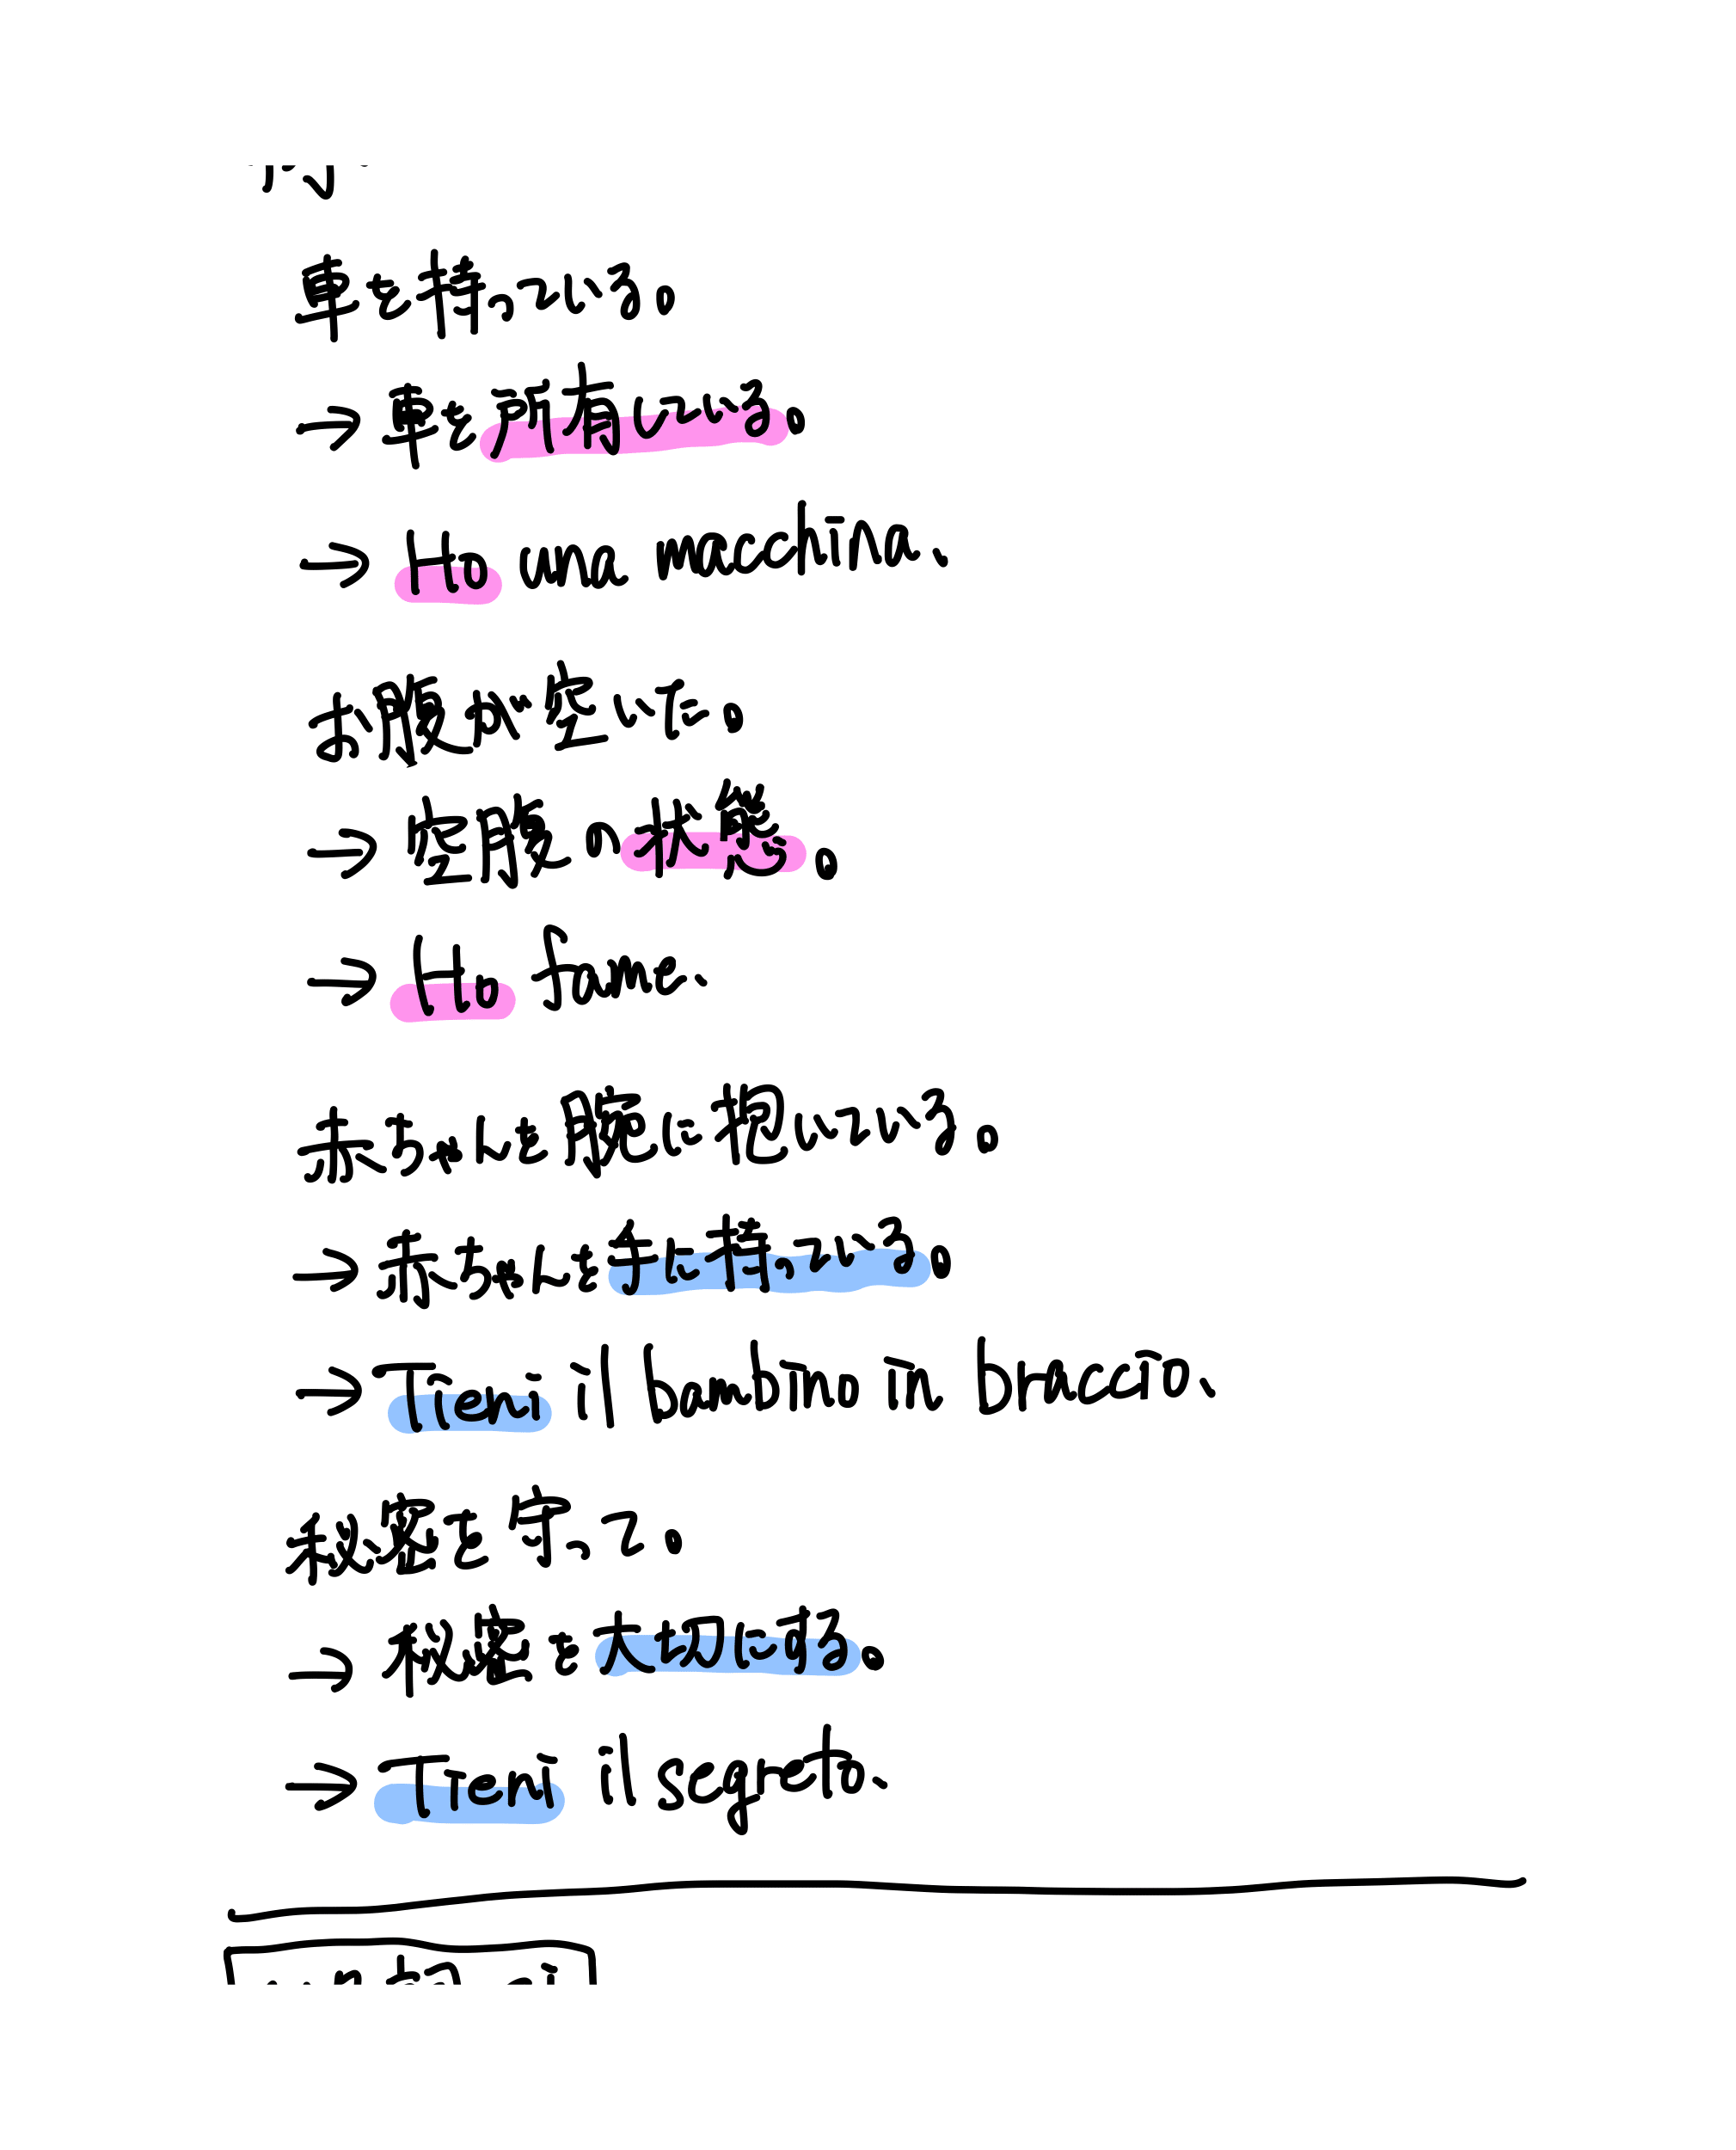 車を持っている。
→ 車を所有している。
→ Ho una macchina.
お腹が空いた。
→ 空腹の状態。
→ Ho fame.
赤ちゃんを腕に抱いている。
→ 赤ちゃんを手に持っている。
→ Tieni il bambino in braccio.
秘密を守って。
→ 秘密を大切にする。
→ Tieni il segreto.